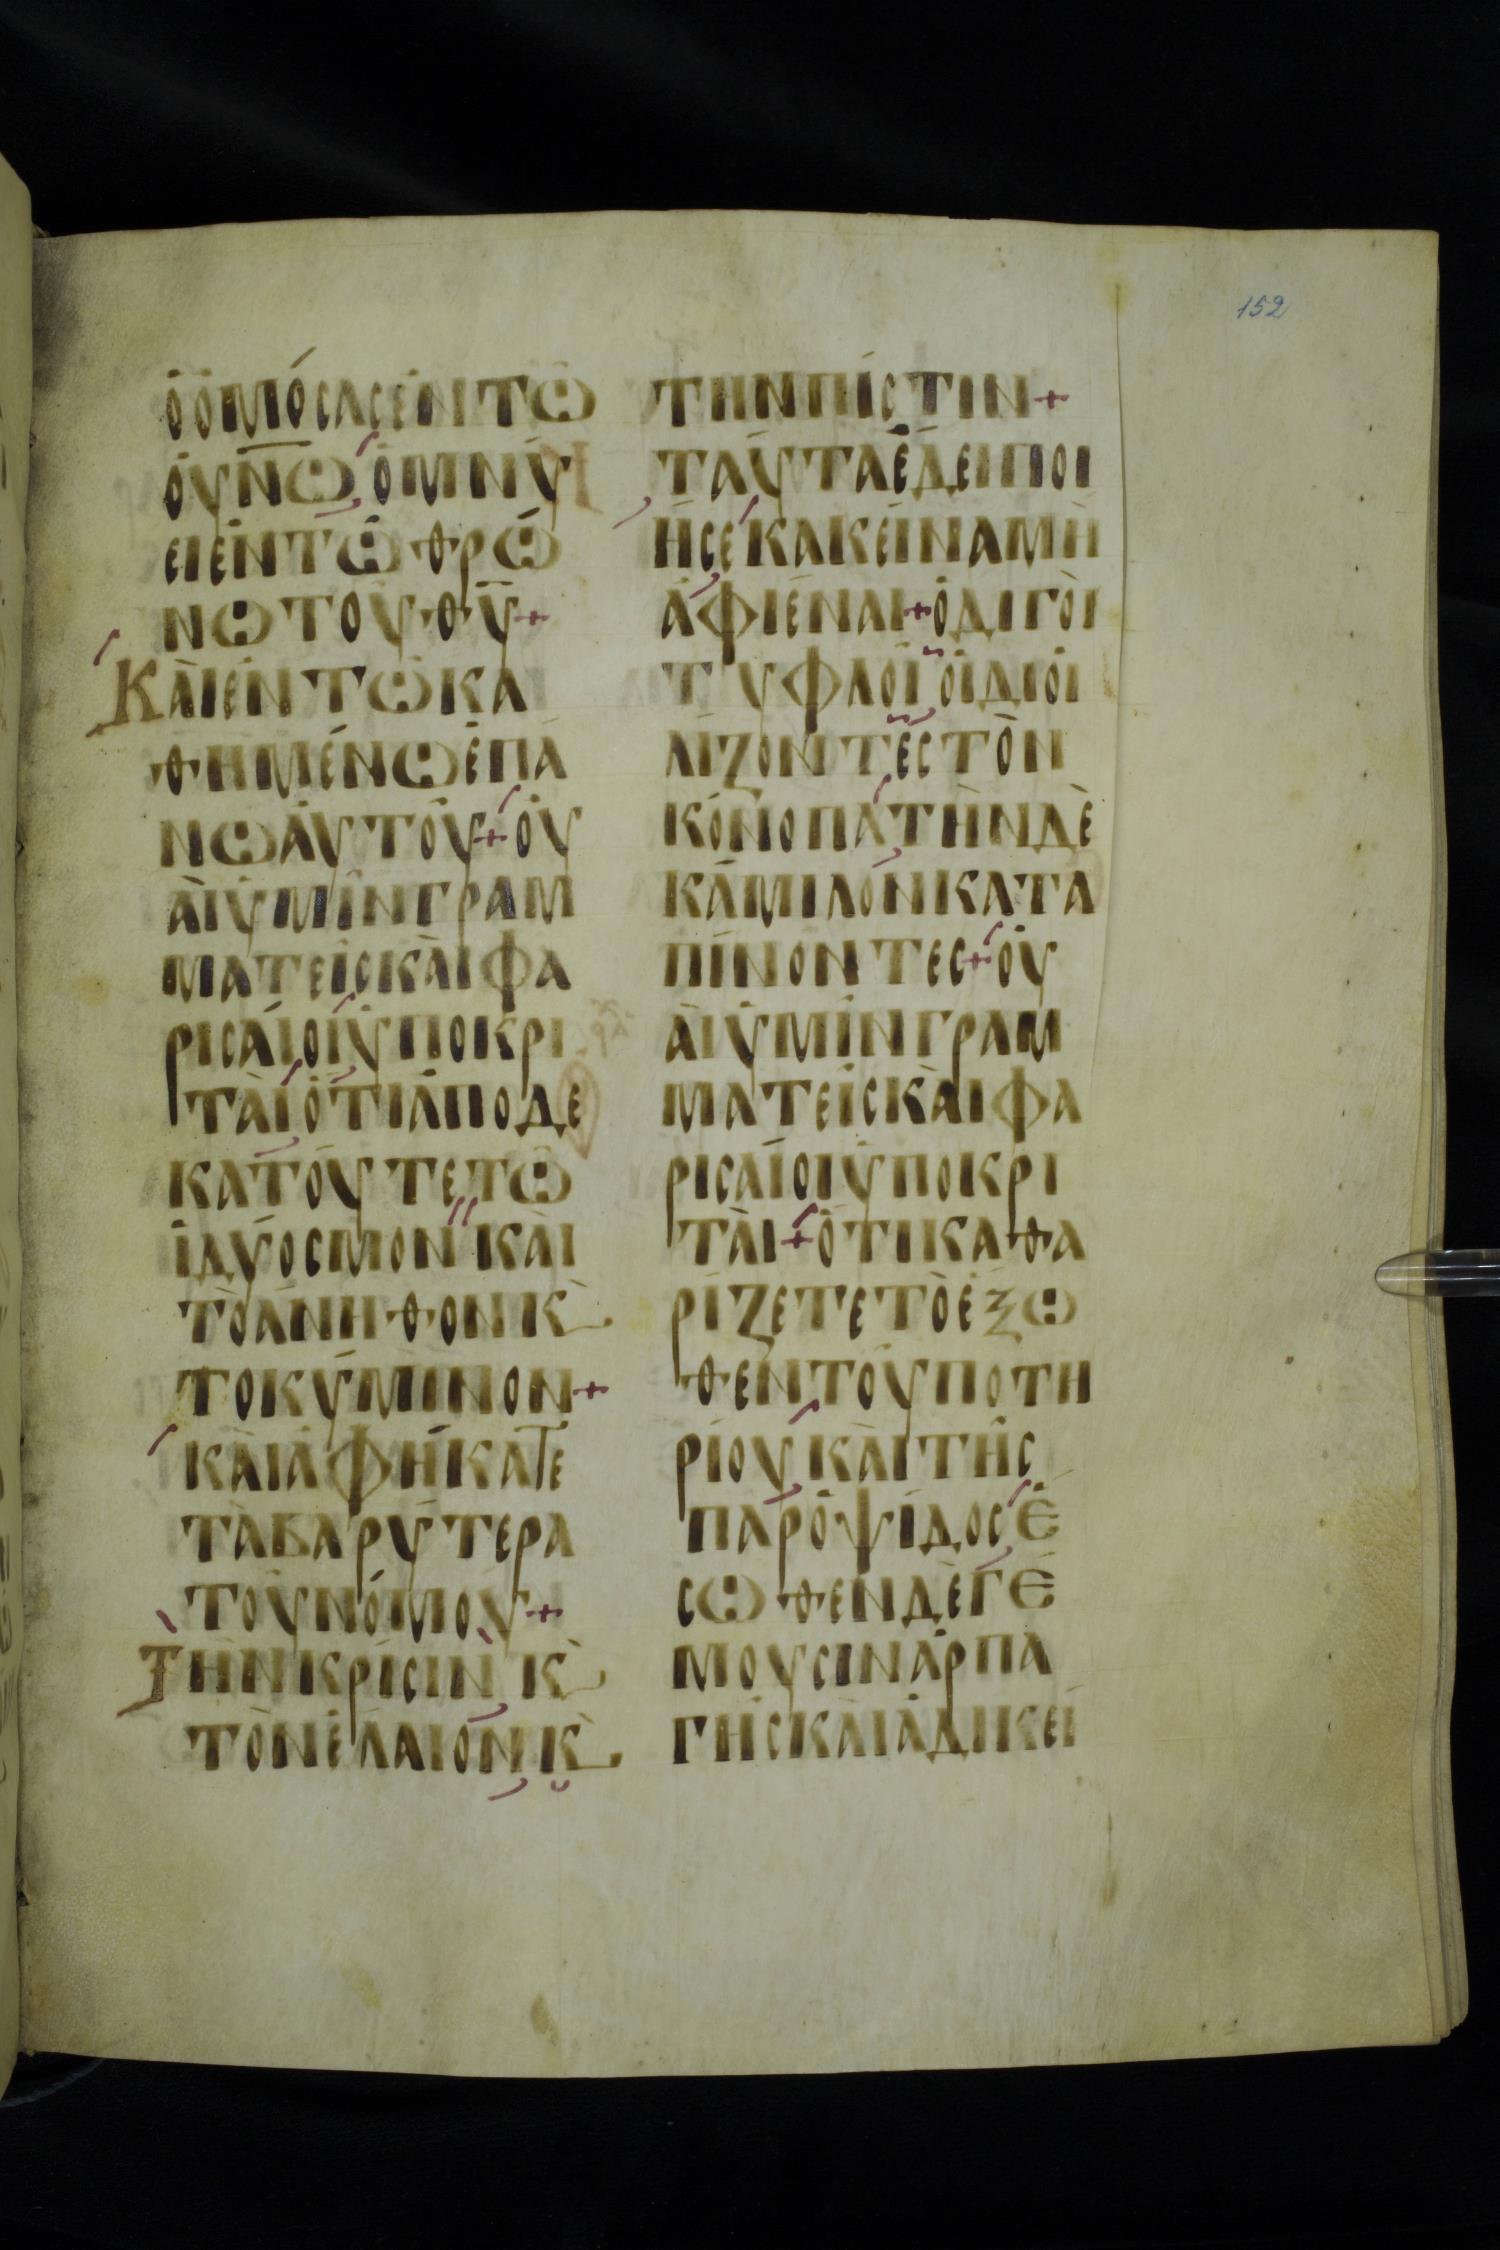 152
ὁ ὀμόσας ἐν τῶ
οὐν̅ω ὀμνύ
ει ἐν τῶ θρό
νω τοῦ θ̅υ̅+
Και ἐν τῶ κα
θημένω ἐπά
νω ἀυτοῦ+ ὀυ
ὰι ὑμῖν γραμ
ματεῖς κὰι φα
ρισᾶιοι ὑποκρι
τὰι ὅτι ἀποδε
κατοῦτε τῶ
ἰδύοσμον κὰι
τὸ ἄνηθον κ̀
το κύμινον+
κὰι ἀφήκατε
τὰ βαρύτερα
τοῦ νόμου+
Τὴν κρίσιν κ̀
τὸν ἔλαιον κ̀
τὴν πίστιν+
ταῦτα ἔδει ποι
ῆσε κακεῖνα μὴ
ἀφιέναι+ ὁδιγὸι
τυφλοὶ ὁι διοι
λίζοντες τὸν
κόνοπα τὴν δὲ
κάμιλον κατα
πίνοντες+ ὀυ
ὰι ὑμῖν γραμ
ματεῖς κὰι φα
ρισᾶιοι ὑποκρι
τὰι+ ὅτι καθα
ρίζετε τὸ ἔξω
θεν τοῦ ποτη
ρίου κὰι τῆς
παροψίδος ἔ
σωθεν δὲ γέ
μουσιν ἁρπα
γῆς κὰι ἀδικεί